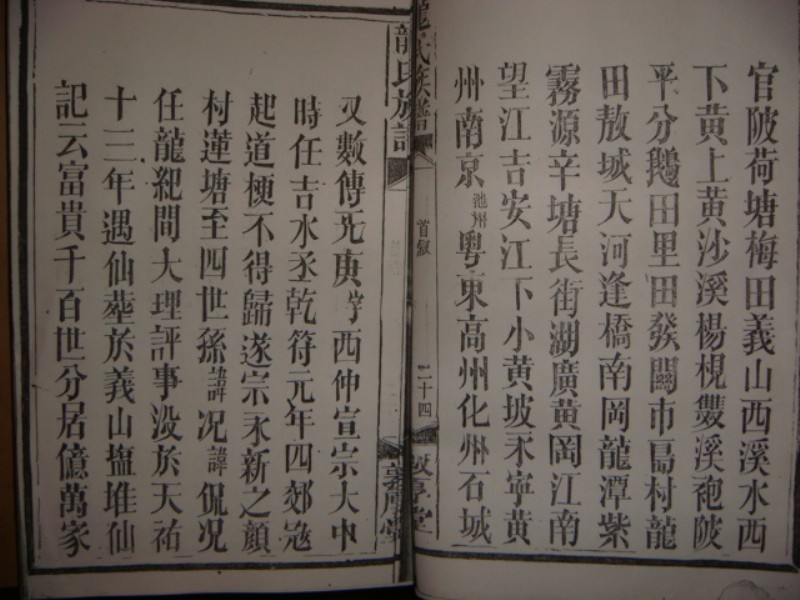 官陂荷塘梅田義山西溪水西
下黃上黃沙溪楊梘雙溪袍陂
平分鵝田里田發閣市島村龍
田敖城天河逢橋南岡龍潭紫
霧源辛塘長街湖廣黃岡江南
望江吉安江下小黃坡永寧黃
州南京池州粵東高州化州石城
龍氏族譜
首敘
二十四
敦厚堂
又數傳元庚字西仲宣宗大中
時任吉水丞乾符元年四郊寇
起道梗不得歸遂宗永新之顏
村蓮塘至四世孫諱况諱侃况
任龍紀間大理評事没於天祐
十三年遇仙葬於義山塩堆仙
記云富貴千百世分居億萬家